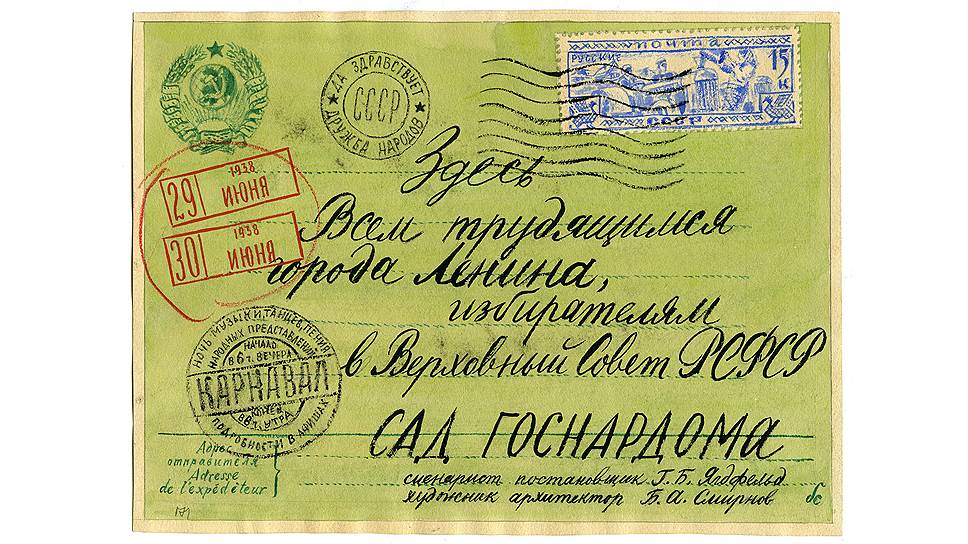 ПОЧТА
РУССКИЕ
15 К
СССР
ДА ЗДРАВСТВУЕТ
СССР
ДРУЖБА НАРОДОВ
Здесь
1938
29 ИЮНЯ
1938
30 ИЮНЯ
Всем трудящимся
города Ленина,
избирателям
в Верховный Совет РСФСР
НОЧЬ МУЗЫКИ, ТАНЦЕВ, ПЕНИЯ
НАРОДНЫХ ПРЕДСТАВЛЕНИЙ
НАЧАЛО
В 6 Ч. ВЕЧЕРА
КАРНАВАЛ
КОНЕЦ
В 6 Ч. УТРА
ПОДРОБНОСТИ В АФИШАХ
САД ГОСНАРДОМА
Адрес
отправителя
Adresse
de l'expéditeur
сценарист постановщик Г. Б. Ягдфельд
художник архитектор Б. А. Смирнов
бс